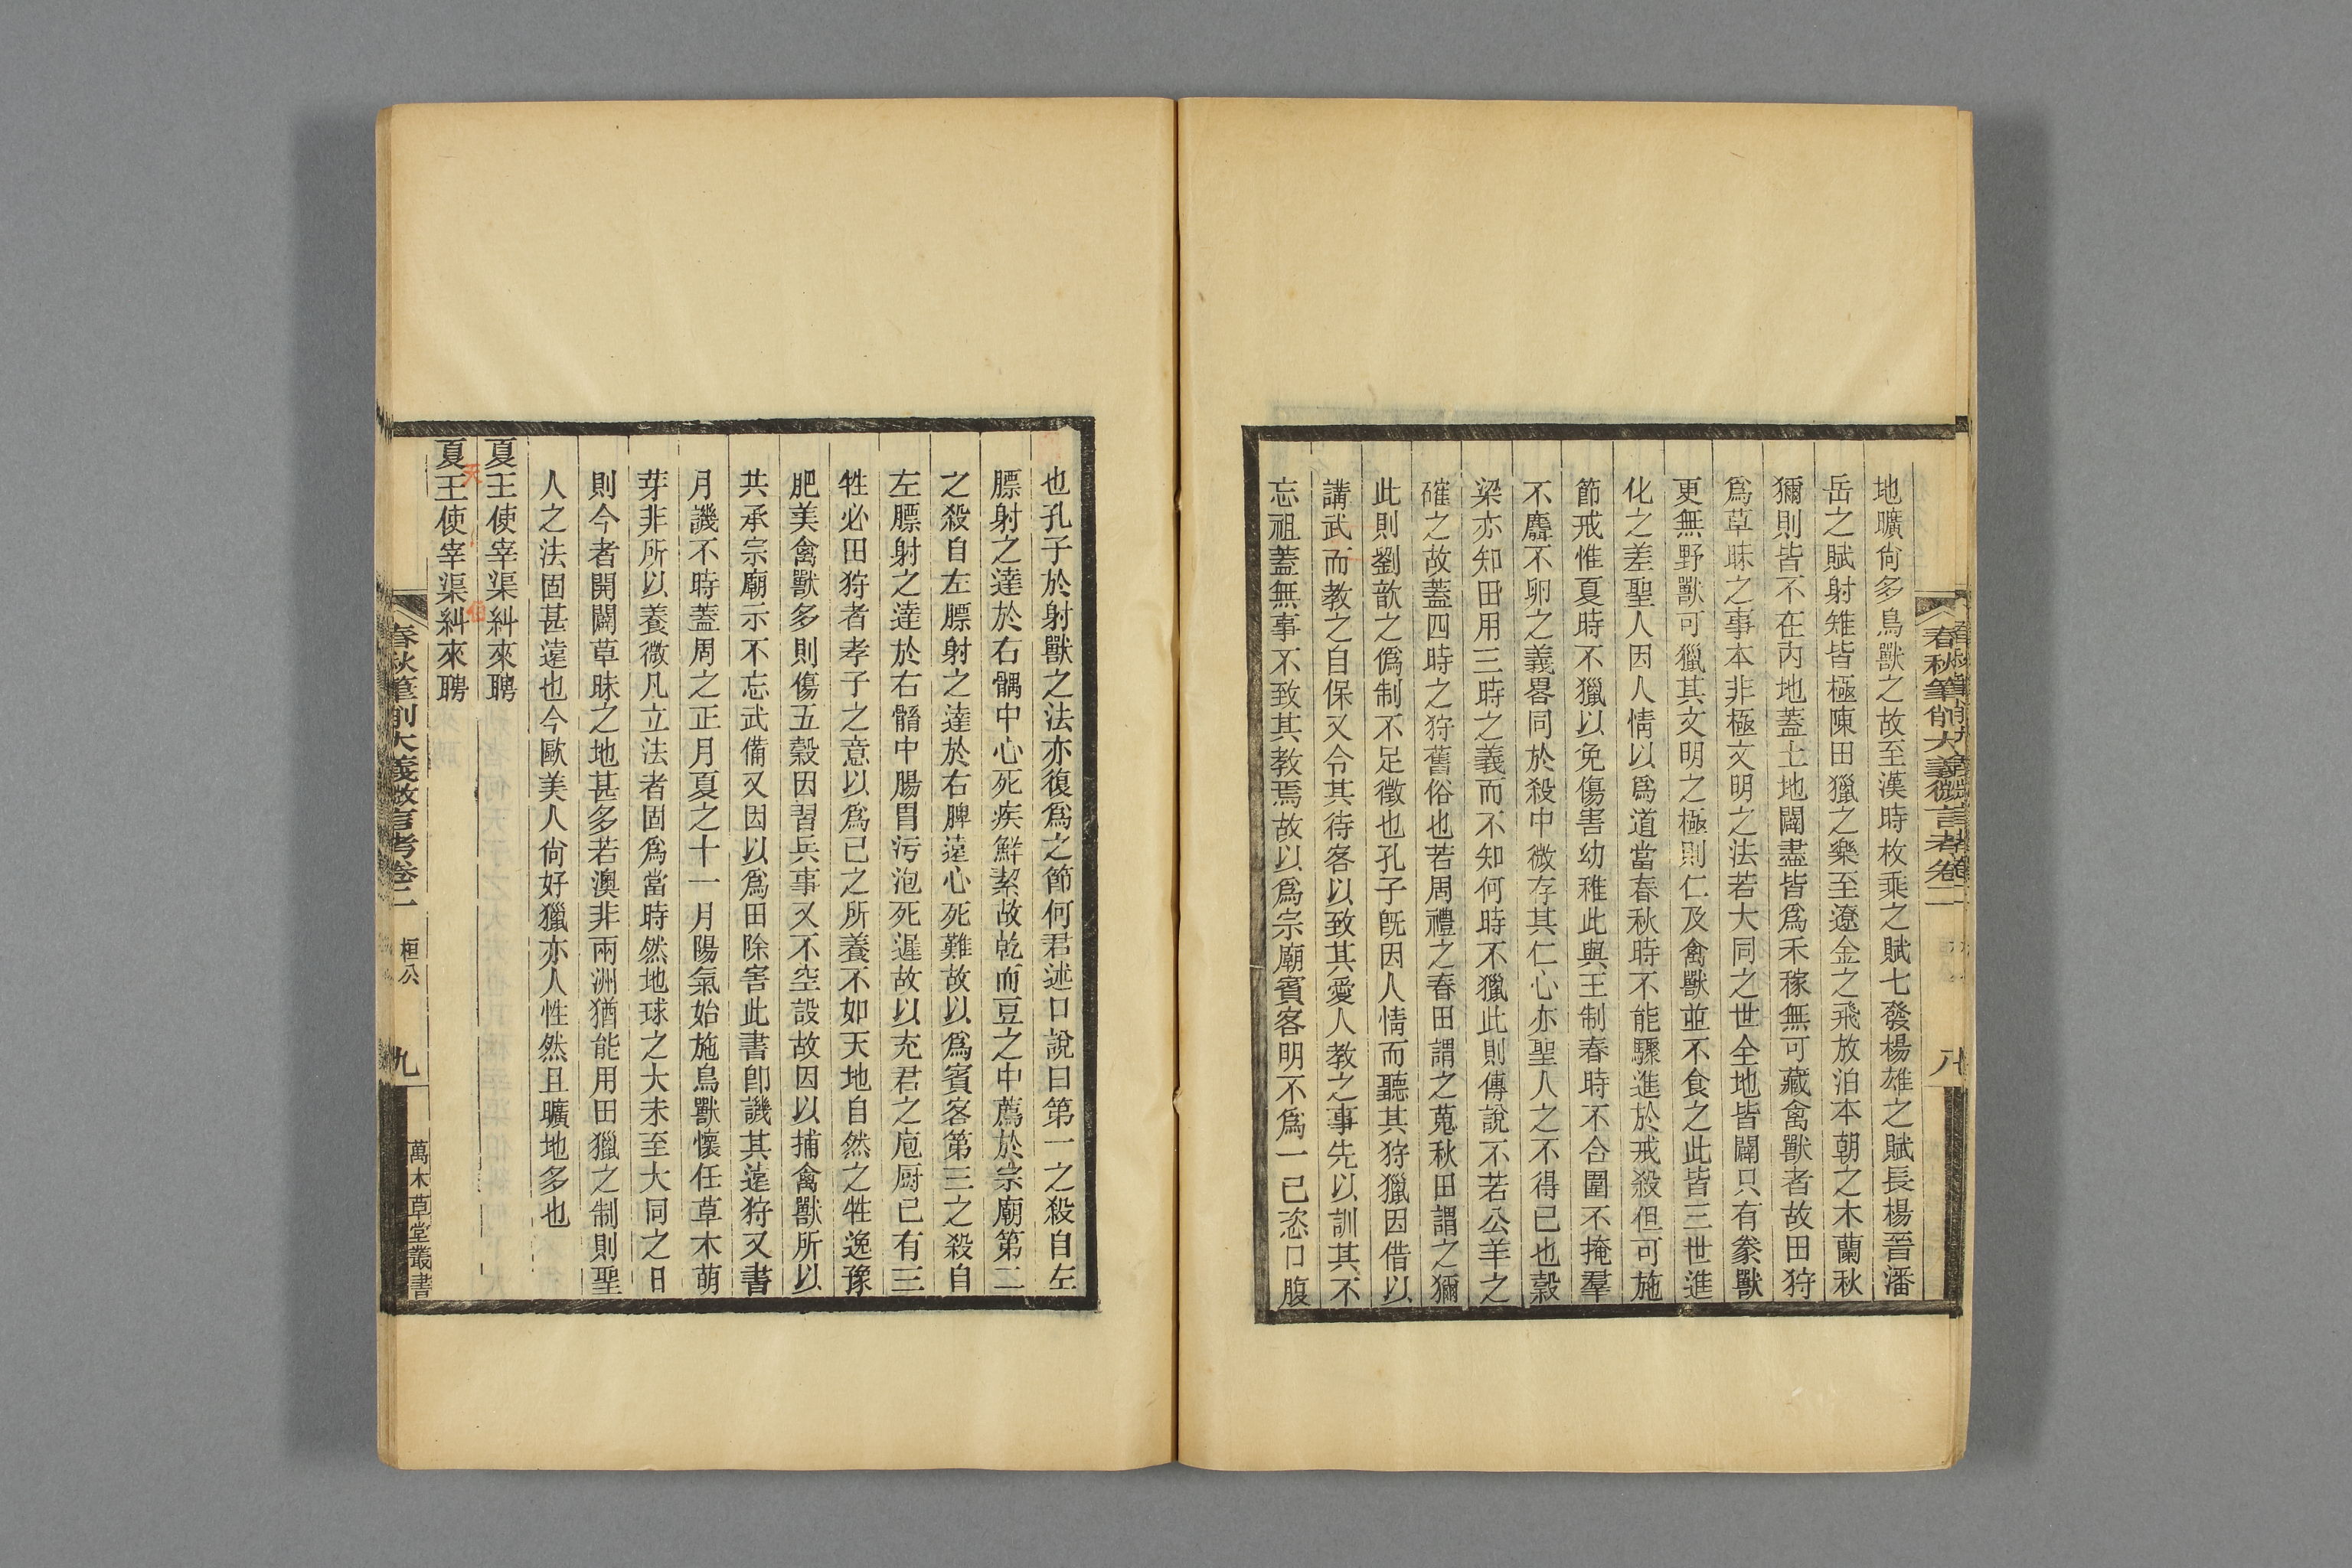 春秋筆削大義微言考卷二
八
地曠尙多鳥獸之故至漢時枚乘之賦七發楊雄之賦長楊晉潘
岳之賦射雉皆極陳田獵之樂至遼金之飛放泊本朝之木蘭秋
獮則皆不在內地蓋土地闢盡皆爲禾稼無可藏禽獸者故田狩
爲草昧之事本非極文明之法若大同之世全地皆闢只有豢獸
更無野獸可獵其文明之極則仁及禽獸並不食之此皆三世進
化之差聖人因人情以爲道當春秋時不能驟進於戒殺但可施
節戒惟夏時不獵以免傷害幼稚此與王制春時不合圍不掩羣
不麛不卵之義畧同於殺中微存其仁心亦聖人之不得已也穀
梁亦知田用三時之義而不知何時不獵此則傳說不若公羊之
確之故蓋四時之狩舊俗也若周禮之春田謂之蒐秋田謂之獮
此則劉歆之僞制不足徵也孔子旣因人情而聽其狩獵因借以
講武而教之自保又令其待客以致其愛人教之事先以訓其不
忘祖蓋無事不致其教焉故以爲宗廟賓客明不爲一己恣口腹
也孔子於射獸之法亦復爲之節何君述口說曰第一之殺自左
膘射之達於右髃中心死疾鮮絜故乾而豆之中薦於宗廟第二
之殺自左膘射之達於右脾遠心死難故以爲賓客第三之殺自
左膘射之達於右䯚中腸胃污泡死遲故以充君之庖厨已有三
牲必田狩者孝子之意以爲己之所養不如天地自然之牲逸豫
肥美禽獸多則傷五穀因習兵事又不空設故因以捕禽獸所以
共承宗廟示不忘武備又因以爲田除害此書卽譏其遠狩又書
月譏不時蓋周之正月夏之十一月陽氣始施鳥獸懷任草木萌
芽非所以養微凡立法者固爲當時然地球之大未至大同之日
則今者開闢草昧之地甚多若澳非兩洲猶能用田獵之制則聖
人之法固甚遠也今歐美人尙好獵亦人性然且曠地多也
夏王使宰渠糾來聘
天
伯
夏王使宰渠糾來聘
春秋筆削大義微言考卷二
桓公
九
萬木草堂叢書